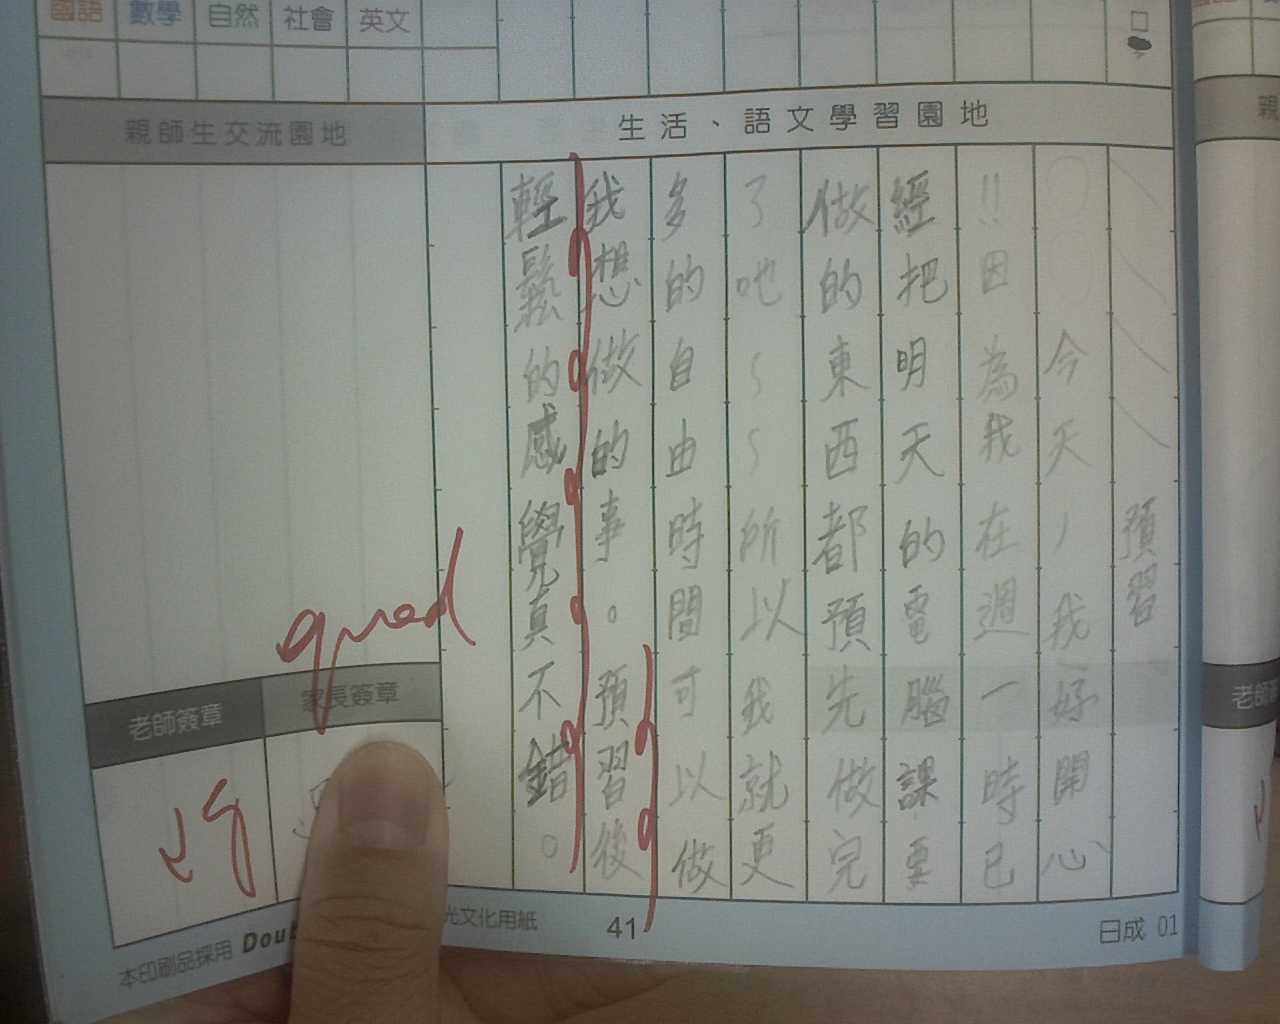 國語 數學 自然 社會 英文
親師生交流園地
生活、語文學習園地
預習
今天,我好開心
!!因為我在週一時已
經把明天的電腦課要
做的東西都預先做完
了吔~~所以我就更
多的自由時間可以做
我想做的事。預習後
輕鬆的感覺真不錯。
good
老師簽章
家長簽章
本印刷品採用 Dou
光文化用紙
41
日成 01
親
老師